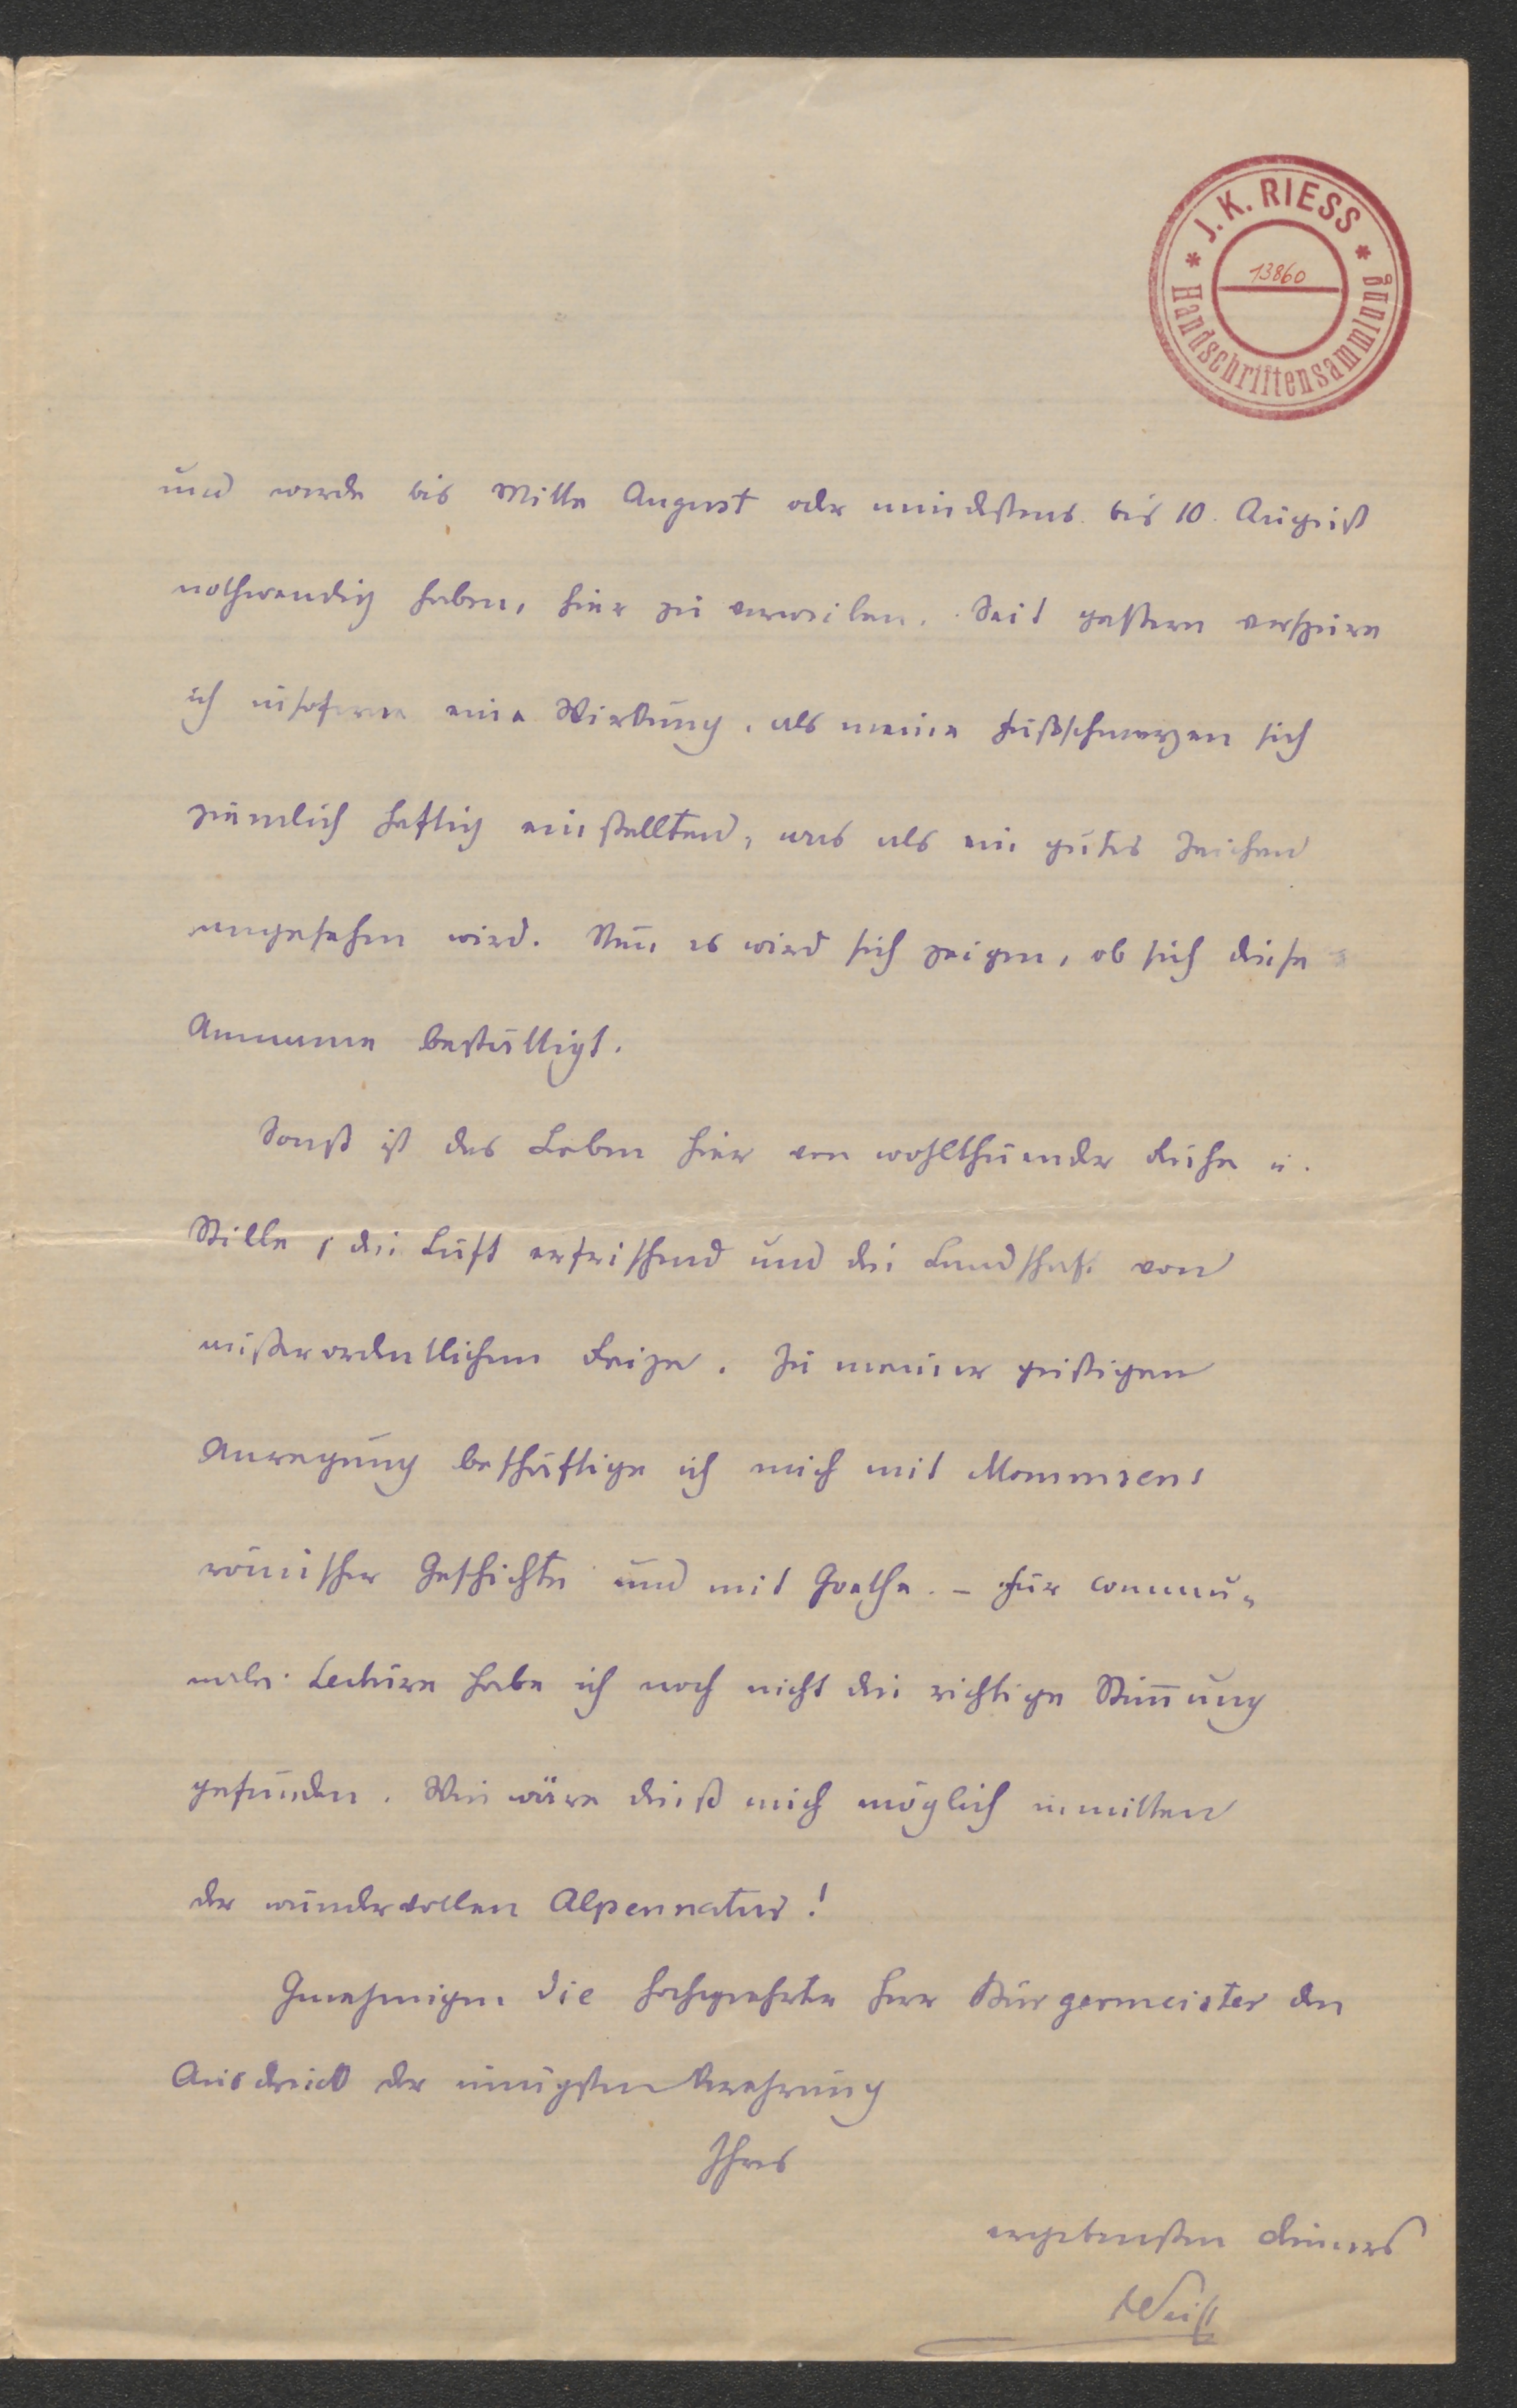 J. K. RIESS
13860
Handschriftensammlung
und werde bis Mitte August oder mindestens bis 10. August
nothwendig haben, hier zu verweilen. Seit gestern verspüre
ich insoferne eine Wirkung, als meine Fußschmerzen sich
ziemlich heftig einstellten, was als ein gutes Zeichen
angesehen wird. Nun es wird sich zeigen, ob sich diese
Annahme bestättigt.
Sonst ist das Leben hier von wohlthuender Ruhe u.
Stille, die Luft erfrischend und die Landschaft von
außerordentlichem Reize. Zu meiner geistigen
Anregung beschäftige ich mich mit Mommsens
römischer Geschichte und mit Goethe. – Für commu-
nale Lectüre habe ich noch nicht die richtige Stim̄ung
gefunden. Wie wäre dieß auch möglich inmitten
der wundervollen Alpennatur!
Genehmigen Sie hochgeehrter Herr Bürgermeister den
Ausdruck der innigsten Verehrung
Ihres
ergebensten Dieners